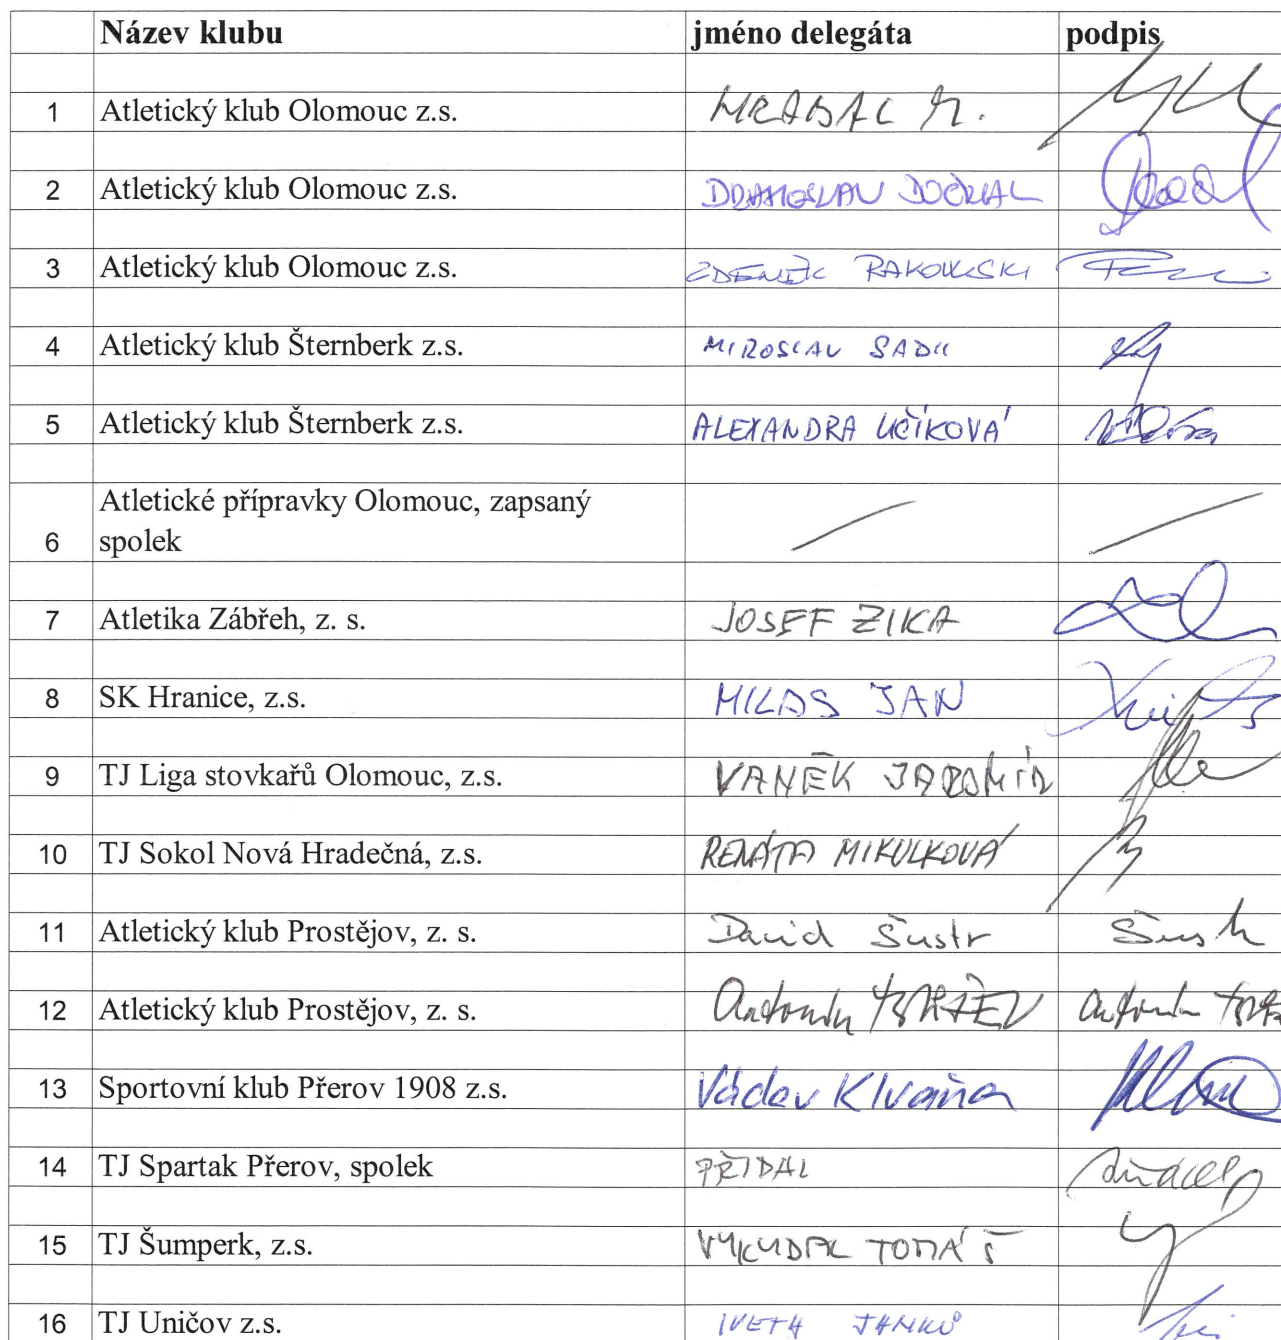 Název klubu jméno delegáta podpis
1 Atletický klub Olomouc z.s. HRABAL M.
2 Atletický klub Olomouc z.s. DRAHOSLAV DOČKAL
3 Atletický klub Olomouc z.s. ZDENEK RAKOWSKI
4 Atletický klub Šternberk z.s. MIROSLAV SADIL
5 Atletický klub Šternberk z.s. ALEXANDRA UČÍKOVÁ
Atletické přípravky Olomouc, zapsaný
6 spolek
7 Atletika Zábřeh, z. s. JOSEF ZIKA
8 SK Hranice, z.s. MILAS JAN
9 TJ Liga stovkařů Olomouc, z.s. VANĚK JAROMÍR
10 TJ Sokol Nová Hradečná, z.s. RENÁTA MIKULKOVÁ
11 Atletický klub Prostějov, z. s. David Šustr
12 Atletický klub Prostějov, z. s. Antonín Antonín
13 Sportovní klub Přerov 1908 z.s. Václav Klvaňa
14 TJ Spartak Přerov, spolek PŘIDAL
15 TJ Šumperk, z.s. VYKYDAL TOMÁŠ
16 TJ Uničov z.s. IVETA JANKŮ